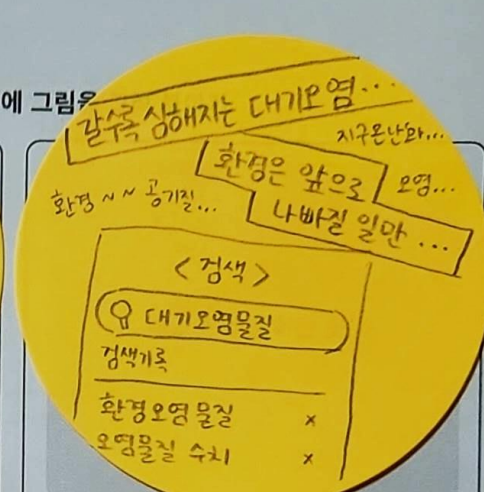 에 그림을
갈수록 심해지는 대기오염...
지구온난화...
환경은 앞으로
오염...
나빠질 일만 ...
환경 ~~ 공기질...
<검색>
대기오염물질
검색기록
환경오염물질 x
오염물질 수치 x